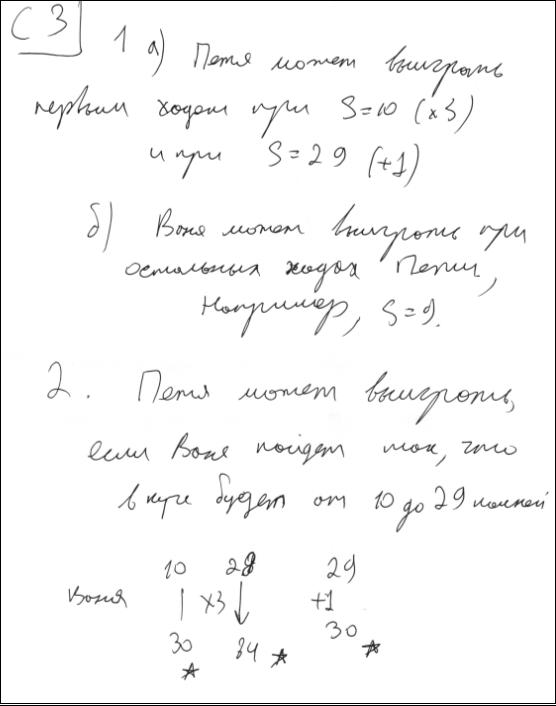 С3
1 а) Петя может выиграть
первым ходом при S=10 (×3)
и при S=29 (+1)
б) Ваня может выиграть при
остальных ходах Пети,
Например, S=9.
2. Петя может выиграть,
если Ваня пойдет так, что
в куче будет от 10 до 29 камней
10 28 29
Ваня ×3 +1
30 84 30